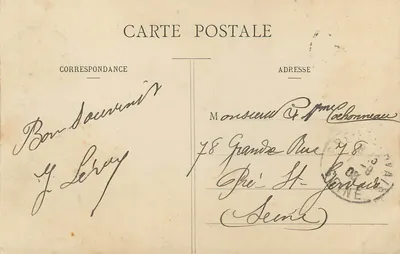 CARTE POSTALE
CORRESPONDANCE
ADRESSE
Bon Souvenir
J Leroy
Monsieur & Mme Cochonneau
78 Grande Rue 78
Pré St-Gervais
(Seine)